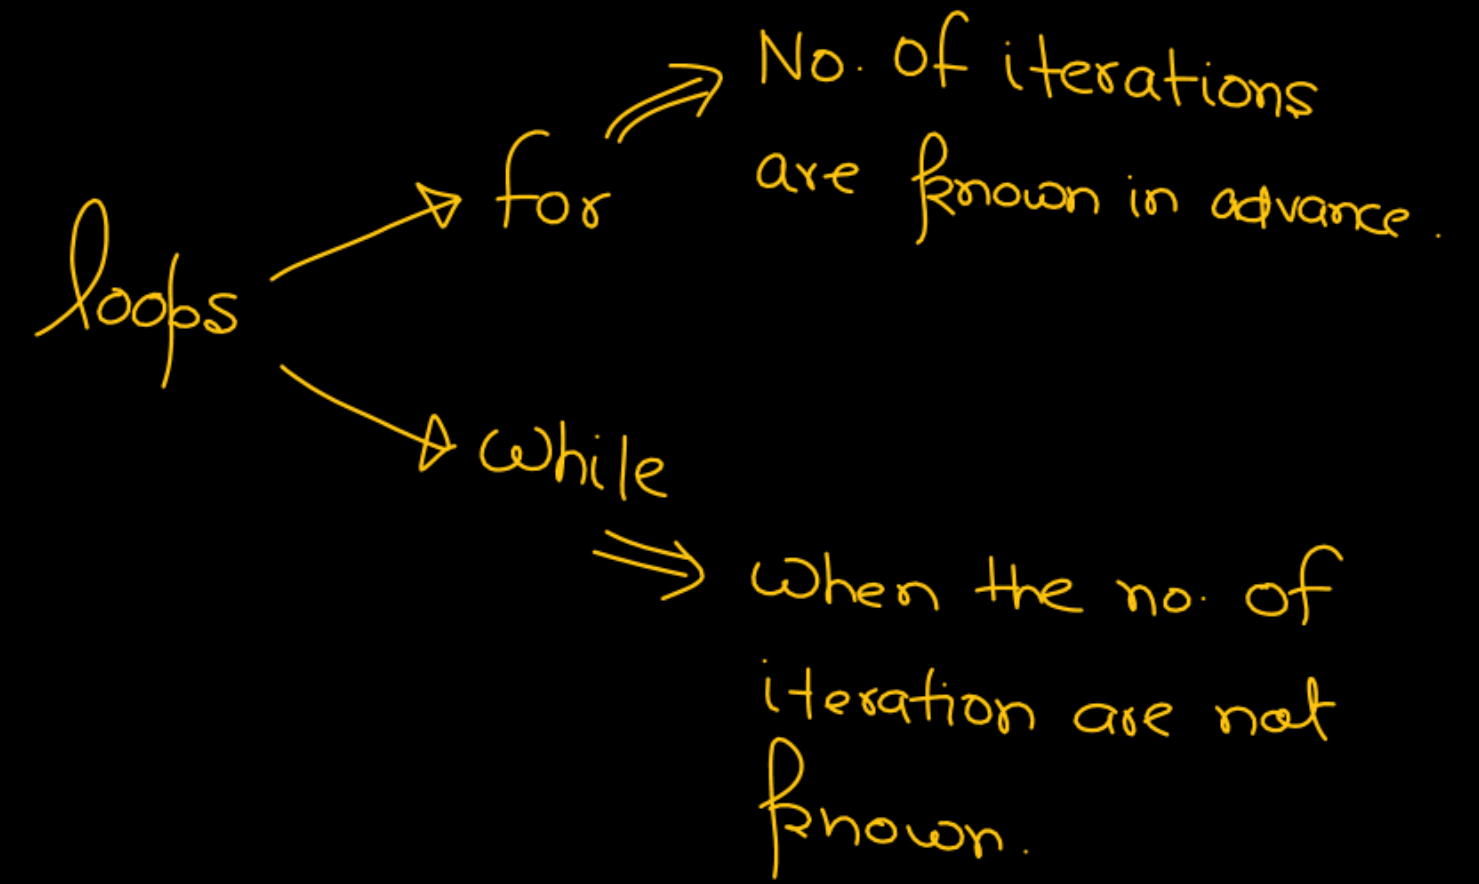 loops
for
No. of iterations
are known in advance.
while
when the no. of
iteration are not
known.